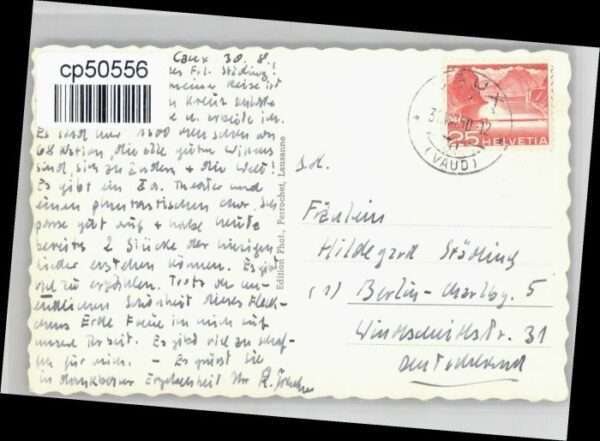 cp50556
Caux 30. 8.
Frl. Städing!
meine Reise ist
Es sind nur 1600 Menschen von
68 Nation, die alle guten Willens
sind, sich zu ändern + die Welt!
Es gibt ein Theater und
einen phantastischen Chor. Ich
passe gut auf + habe heute
bereits 2 Stücke der hiesigen
Lieder erstehen können. Es gibt
viel zu erzählen. Trotz der un-
endlichen Schönheit dieses Fleck-
chens Erde freue ich mich auf
unsere Arbeit. Es gibt viel zu schaf-
fen für mich. – Es grüßt Sie
in dankbarer Ergebenheit Ihr
Edition Phot. Perrochet, Lausanne
25 HELVETIA
CAUX
(VAUD)
Fräulein
Hildegard Städing
(1) Berlin-Charlbg. 5
31
Deutschland